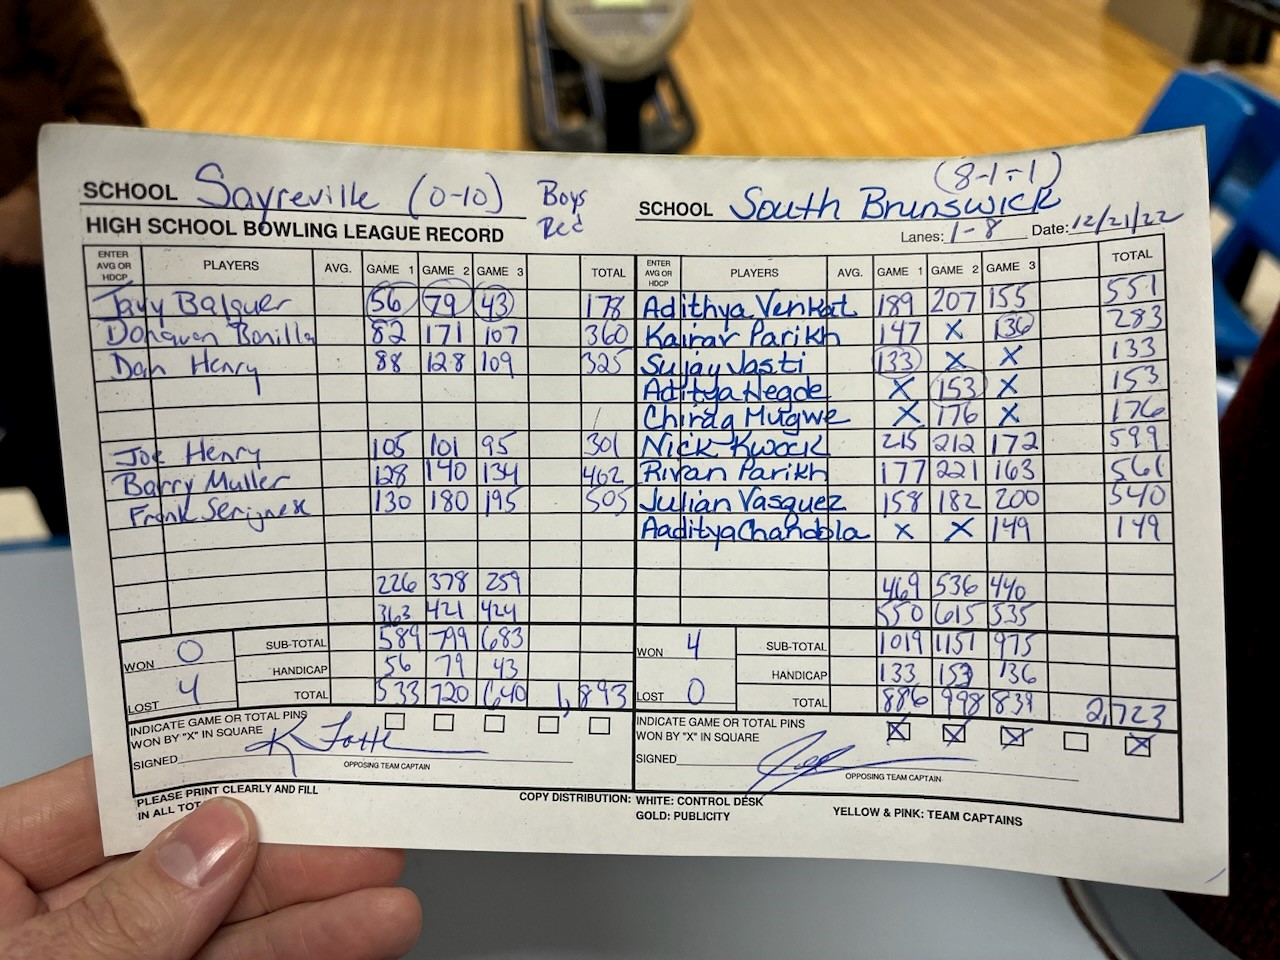 SCHOOL Sayreville (0-10) Boys Red
HIGH SCHOOL BOWLING LEAGUE RECORD
ENTER AVG OR HDCP PLAYERS AVG. GAME 1 GAME 2 GAME 3 TOTAL
56 79 43 178
Donavan Bonilla 82 171 107 360
Dan Henry 88 128 109 325
Joe Henry 105 101 95 301
Barry Muller 128 140 134 462
Frank 130 180 195 505
226 378 259
363 421 424
SUB-TOTAL 589 799 683
WON 0
HANDICAP 56 79 43
LOST 4
TOTAL 533 720 640 1,893
INDICATE GAME OR TOTAL PINS
WON BY "X" IN SQUARE
SIGNED
OPPOSING TEAM CAPTAIN
PLEASE PRINT CLEARLY AND FILL
IN ALL
(8-1-1)
SCHOOL South Brunswick
Lanes: 1-8 Date: 12/21/22
ENTER AVG OR HDCP PLAYERS AVG. GAME 1 GAME 2 GAME 3 TOTAL
Adithya Venkat 189 207 155 551
Kairav Parikh 147 X 136 283
Sujay Jasti 133 X X 133
Aditya Hegde X 153 X 153
Chirag Mugwe X 176 X 176
Nick Kwock 215 212 172 599
Rivan Parikh 177 221 163 561
Julian Vasquez 158 182 200 540
Aaditya Chandola X X 149 149
469 536 440
550 615 535
SUB-TOTAL 1019 1151 975
WON 4
HANDICAP 133 153 136
LOST 0
TOTAL 886 998 839 2,723
INDICATE GAME OR TOTAL PINS
WON BY "X" IN SQUARE X X X X
SIGNED
OPPOSING TEAM CAPTAIN
COPY DISTRIBUTION: WHITE: CONTROL DESK
GOLD: PUBLICITY
YELLOW & PINK: TEAM CAPTAINS